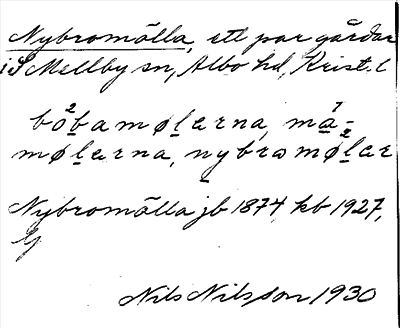 Nybromölla, ett par gårdar
i S Mellby sn, Albo hd, Krist. l
bo²bamølarna, må¹-
mølarna, nybromø²lar
Nybromölla jb 1874, kb 1927,
G
Nils Nilsson 1930